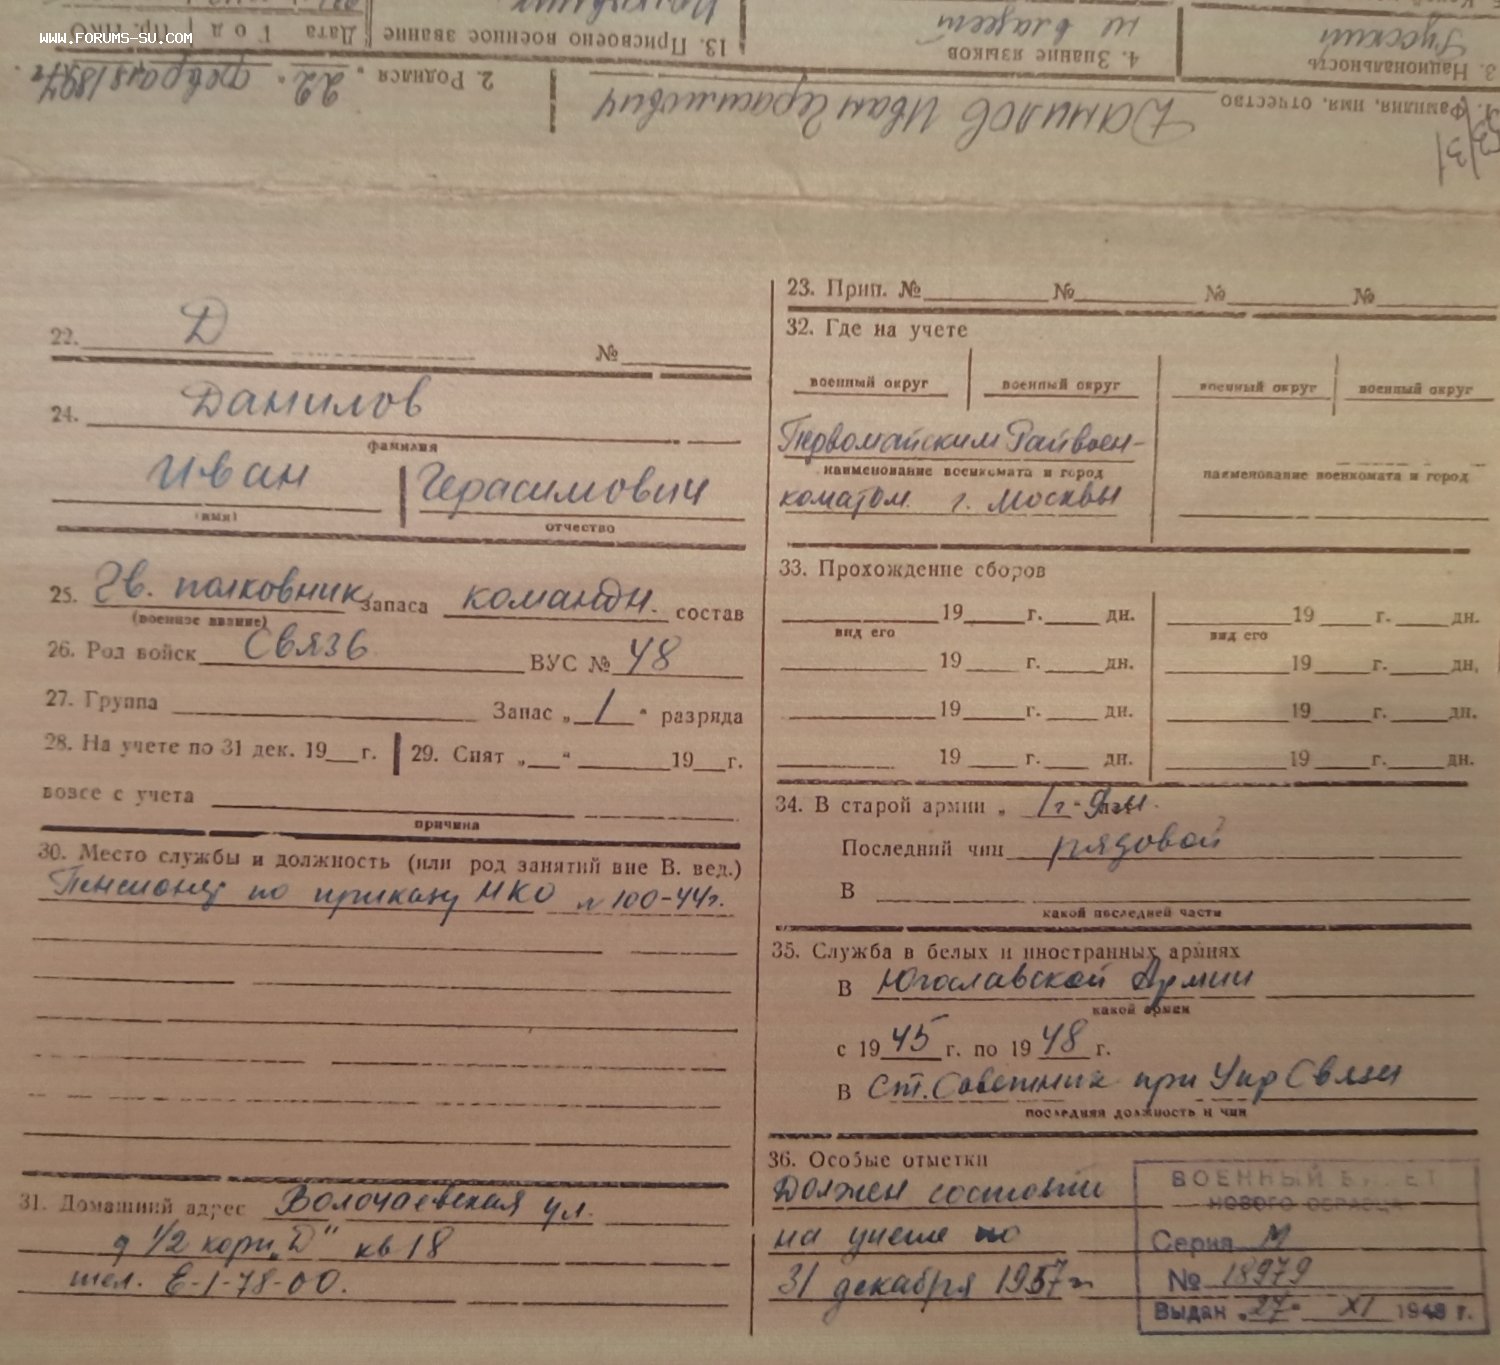 WWW.FORUMS-SU.COM
13. Присвоено военное звание Дата Год пр. НКО
4. Знание языков
не владеет
3. Национальность
Русский
2. Родился „22“ февраля 1897 г.
1. Фамилия, имя, отчество Данилов Иван Герасимович
22. Д №
24. Данилов
фамилия
Иван Герасимович
(имя) отчество
25. Гв. полковник запаса командн. состав
(военное звание)
26. Род войск Связь ВУС № 48
27. Группа Запас „1“ разряда
28. На учете по 31 дек. 19 г. 29. Снят „ “ 19 г.
вовсе с учета
причина
30. Место службы и должность (или род занятий вне В. вед.)
Пенсионер по приказу НКО № 100-44г.
31. Домашний адрес Волочаевская ул.
д 1/2 корп. „Д“ кв 18
тел. Е-1-78-00.
23. Прип. № № № №
32. Где на учете
военный округ военный округ военный округ военный округ
Первомайским Райвоен-
наименование военкомата и город наименование военкомата и город
коматом г. Москвы
33. Прохождение сборов
19 г. дн. 19 г. дн.
вид его вид его
19 г. дн. 19 г. дн.
19 г. дн. 19 г. дн.
19 г. дн. 19 г. дн.
34. В старой армии „
Последний чин рядовой
В
какой последней части
35. Служба в белых и иностранных армиях
В Югославской Армии
какой армии
с 1945 г. по 1948 г.
В Ст. Советник при Упр Связи
последняя должность и чин
36. Особые отметки
Должен состоять
на учете по
31 декабря 1957 г
ВОЕННЫЙ БИЛЕТ
НОВОГО ОБРАЗЦА
Серия М
№ 18979
Выдан „27“ XI 1948 г.